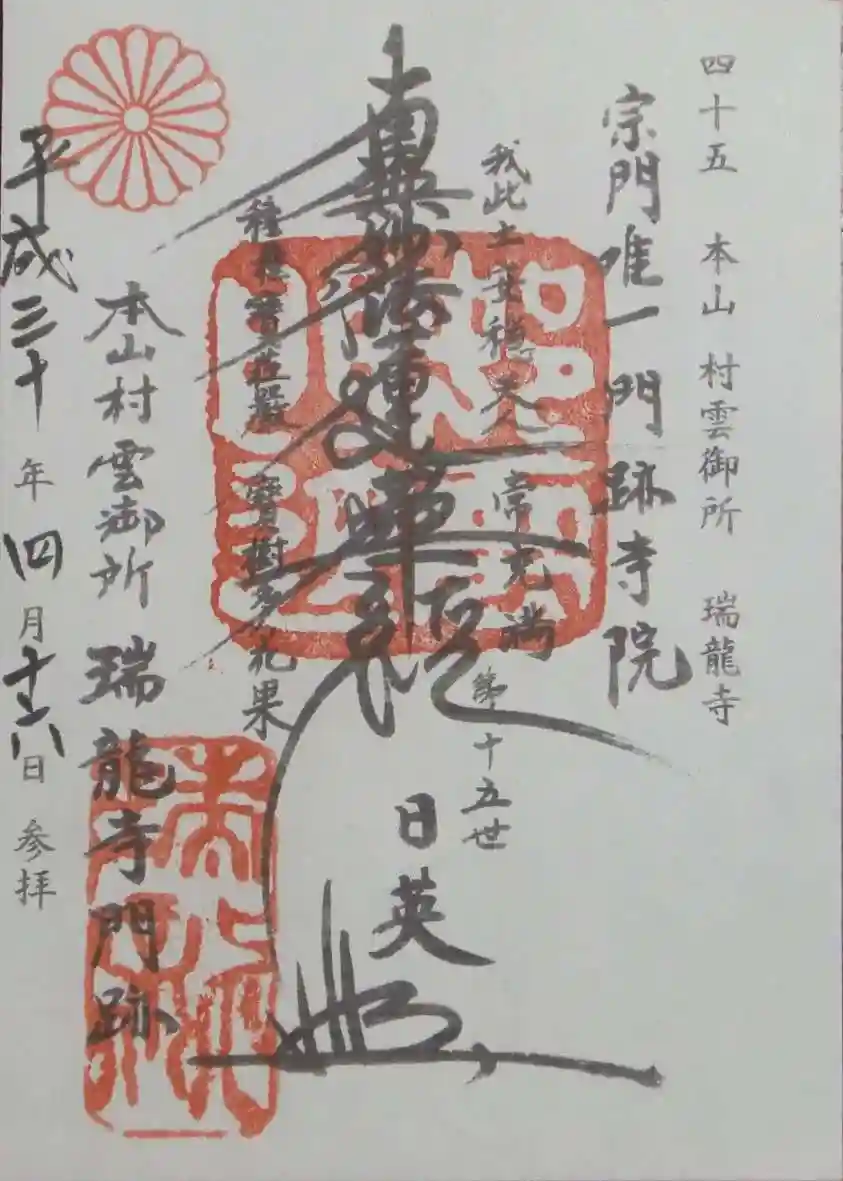 四十五 本山 村雲御所 瑞龍寺
宗門唯一門跡寺院
我此土安穏 天人常充満
第十五世
南無妙法蓮華経
日英
種種寶荘厳 寶樹多花果
本山村雲御所 瑞龍寺門跡
平成三十年四月十六日 参拝